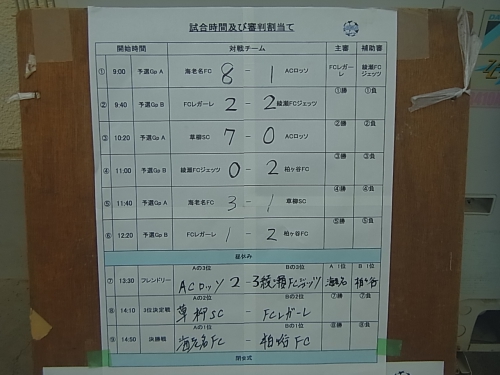 試合時間及び審判割当て
開始時間 対戦チーム 主審 補助審
① 9:00 予選Gp A 海老名FC 8 - 1 ACロッソ FCレガーレ 綾瀬FCジェッツ
② 9:40 予選Gp B FCレガーレ 2 - 2 綾瀬FCジェッツ ①勝 ①負
③ 10:20 予選Gp A 草柳SC 7 - 0 ACロッソ ②勝 ②負
④ 11:00 予選Gp B 綾瀬FCジェッツ 0 - 2 柏ヶ谷FC ③勝 ③負
⑤ 11:40 予選Gp A 海老名FC 3 - 1 草柳SC ④勝 ④負
⑥ 12:20 予選Gp B FCレガーレ 1 - 2 柏ヶ谷FC ⑤勝 ⑤負
昼休み
Aの3位 Bの3位 A 1位 B 1位
⑦ 13:30 フレンドリー ACロッソ 2 - 3 綾瀬FCジェッツ 海老名 柏ヶ谷
Aの2位 Bの2位 ⑦勝 ⑦負
⑧ 14:10 3位決定戦 草柳SC - FCレガーレ
Aの1位 Bの1位 ⑧勝 ⑧負
⑨ 14:50 決勝戦 海老名FC - 柏ヶ谷FC
閉会式